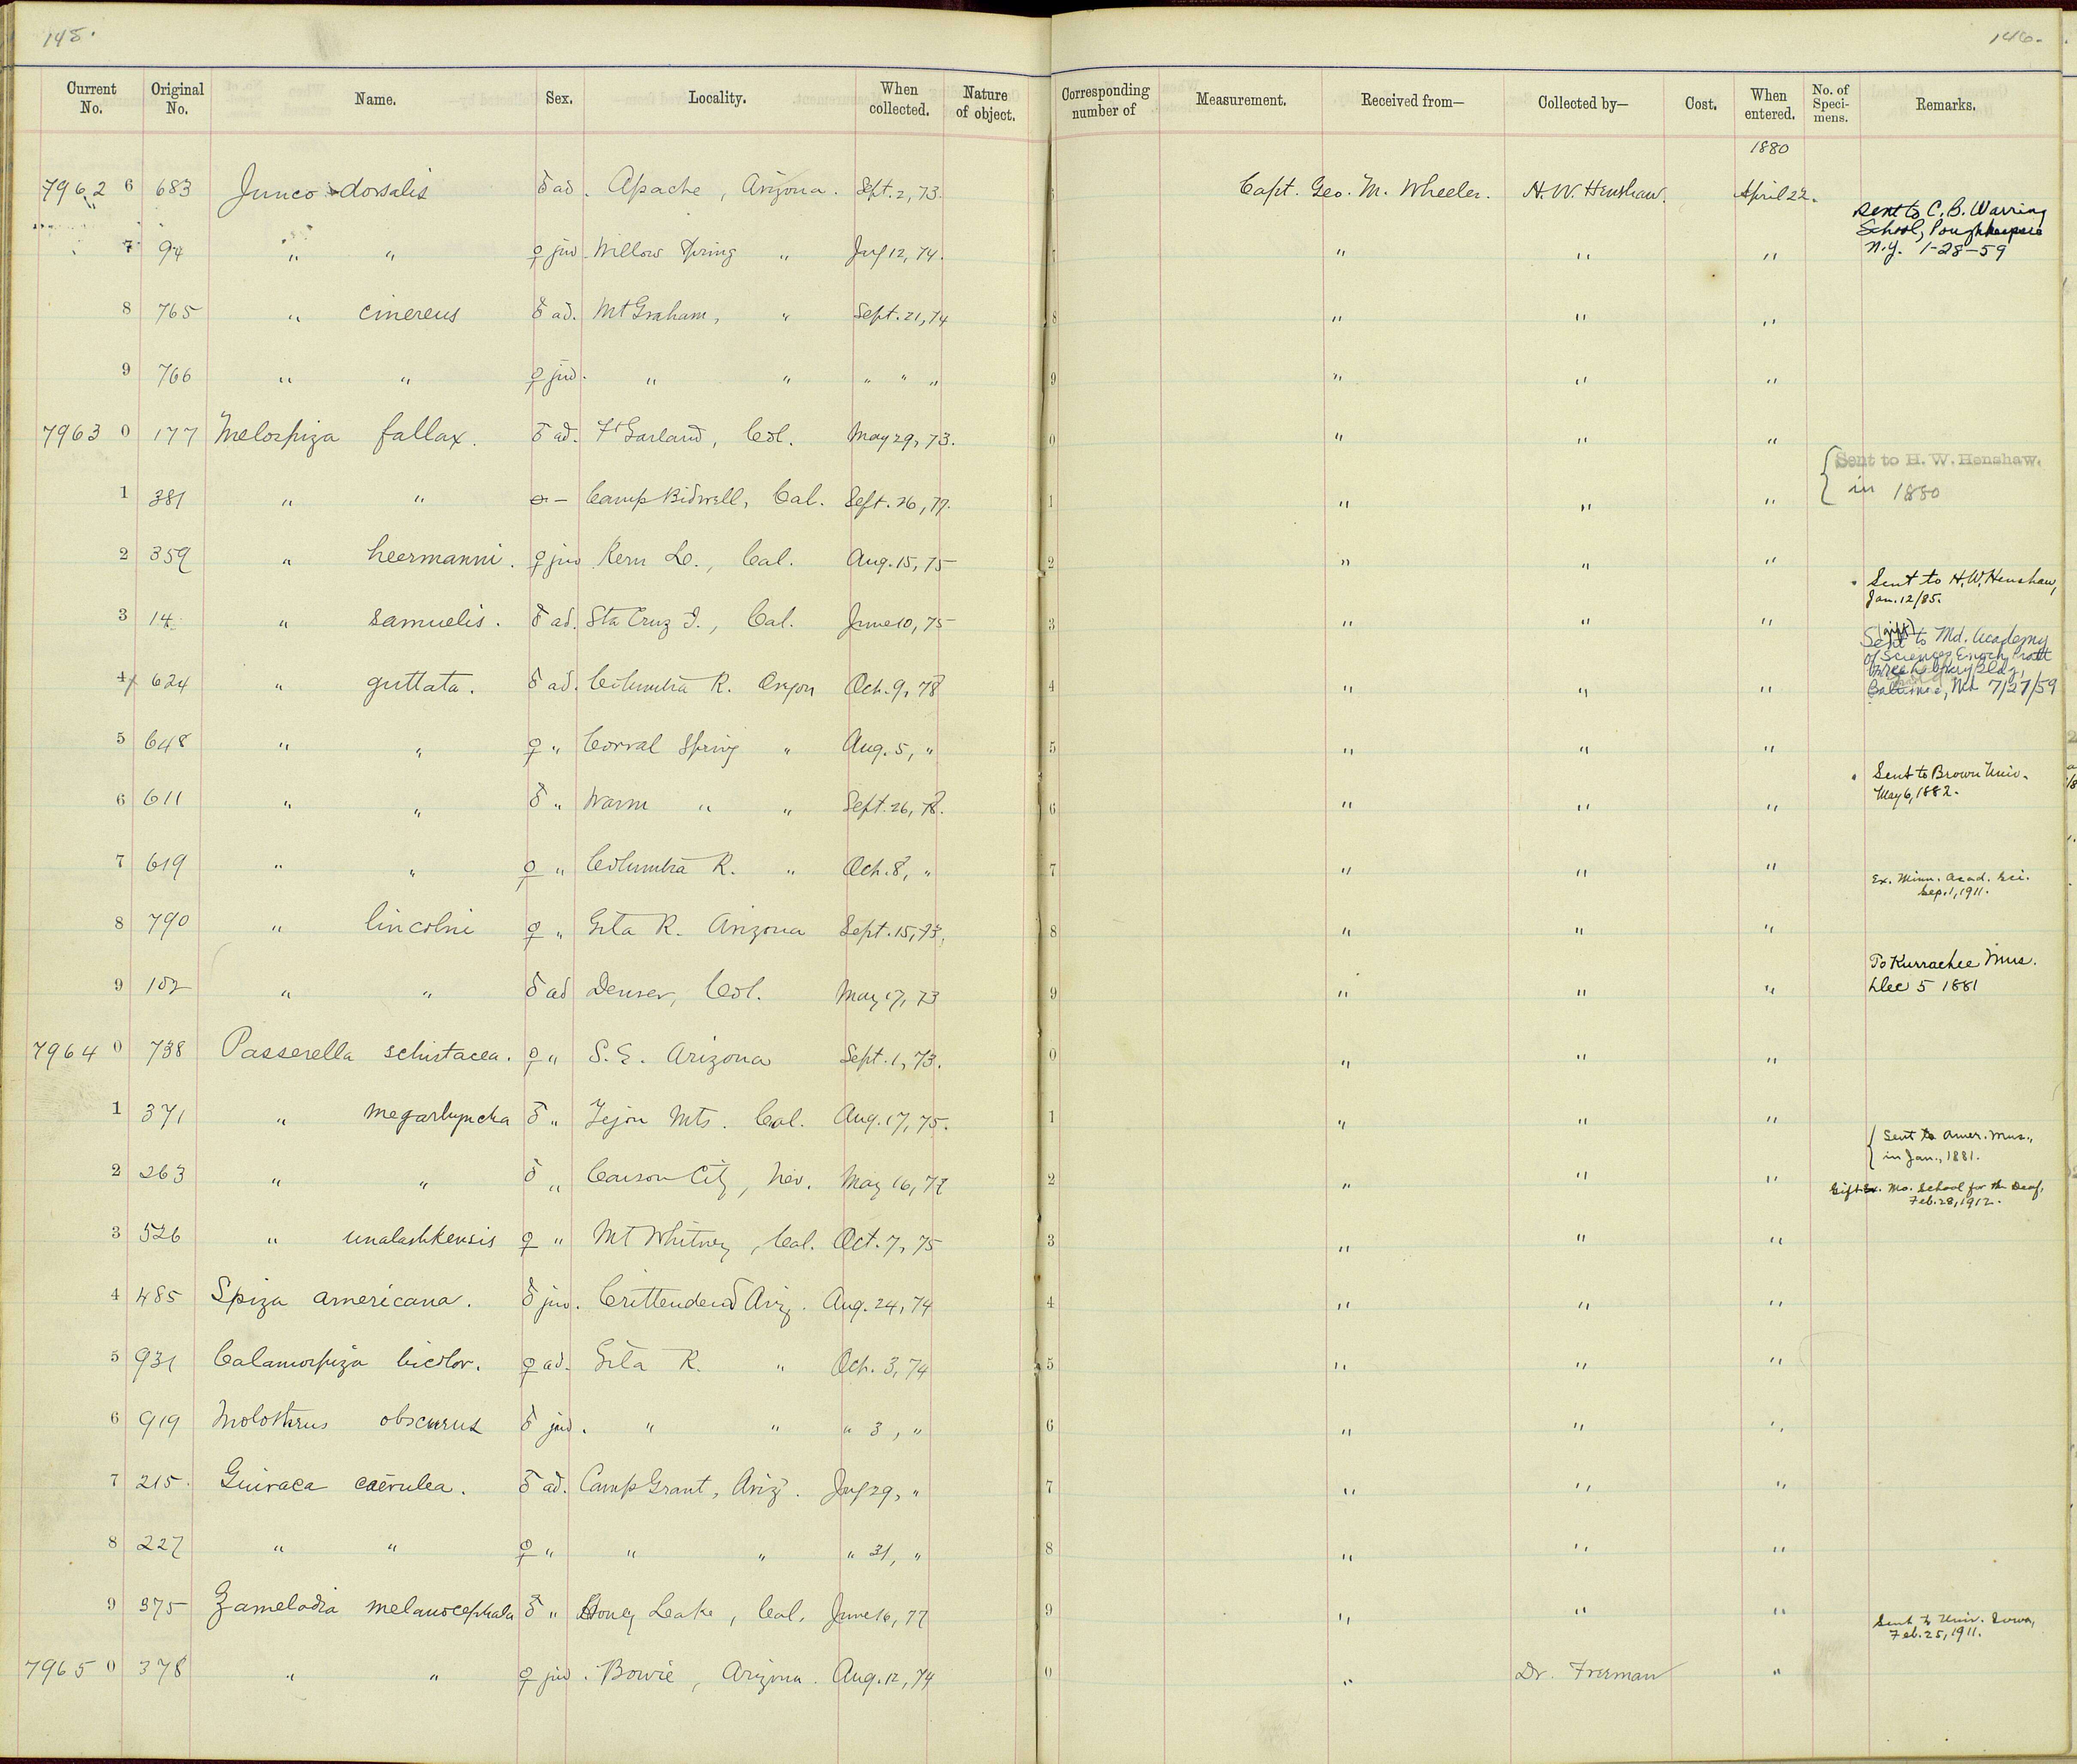 145. 146.
Current No. Original No. Name. Sex. Locality. When collected. Nature of object. Corresponding number of Measurement. Received from— Collected by— Cost. When entered. No. of Speci-mens. Remarks.
1880
7962 6 683 Junco dorsalis ♂ ad. Apache, Arizona. Sept. 2, 73. Capt. Geo. M. Wheeler. H. W. Henshaw. April 22.
Sent to C. B. Warring
School, Poughkeepsie
N.Y. 1-28-59
7 94 " " ♀ juv. Willow Spring " July 12, 74. 7 " " "
8 765 " cinereus ♂ ad. Mt Graham, " Sept. 21, 74 8 " " "
9 766 " " ♀ juv. " " " " " 9 " " "
7963 0 177 Melospiza fallax. ♂ ad. Ft Garland, Col. May 29, 73. 0 " " "
{ Sent to H. W. Henshaw.
in 1880
1 381 " " — Camp Bidwell, Cal. Sept. 26, 77. 1 " " "
2 359 " heermanni. ♀ juv Kern Co., Cal. Aug. 15, 75 2 " " "
Sent to H. W. Henshaw,
Jan. 12/85.
3 14 " samuelis. ♂ ad. Sta Cruz I., Cal. June 10, 75 3 " " "
(gift)
Sent to Md. Academy
of Sciences, Enoch Pratt
Free Library Bldg,
Baltimore, Md 7/27/59
4 624 " guttata. ♂ ad. Columbia R. Oregon Oct. 9, 78 4 " " "
5 648 " " ♀ " Corral Spring " Aug. 5, " 5 " " "
Sent to Brown Univ.
May 6, 1882.
6 611 " " ♂ " Warm " " Sept. 26, 78. 6 " " "
7 619 " " ♀ " Columbia R. " Oct. 8, " 7 " " "
Ex. Minn. Acad. Sci.
Sep. 1, 1911.
8 790 " lincolni ♀ " Gila R. Arizona Sept. 15, 73. 8 " " "
To Kurrachee Mus.
Dec 5 1881
9 102 " " ♂ ad Denver, Col. May 17, 73 9 " " "
7964 0 738 Passerella schistacea. ♀ " S. E. Arizona Sept. 1, 73. 0 " " "
1 371 " megarhyncha ♂ " Tejon Mts. Cal. Aug. 17, 75. 1 " " "
{ Sent to Amer. Mus.,
in Jan., 1881.
2 263 " " ♂ " Carson City, Nev. May 16, 77 2 " " "
Gift Ex. Mo. School for the Deaf,
Feb. 28, 1912.
3 526 " unalashkensis ♀ " Mt Whitney, Cal. Oct. 7, 75 3 " " "
4 485 Spiza americana. ♂ juv. Crittenden Ariz. Aug. 24, 74 4 " " "
5 931 Calamospiza bicolor. ♀ ad. Gila R. " Oct. 3, 74 5 " " "
6 919 Molothrus obscurus ♂ juv. " " " 3, " 6 " " "
7 215. Guiraca caerulea. ♂ ad. Camp Grant, Ariz. July 29, " 7 " " "
8 227 " " ♀ " " " " 31, " 8 " " "
9 375 Zamelodia melanocephala ♂ " Honey Lake, Cal. June 16, 77 9 " " "
Sent to Univ. Iowa,
Feb. 25, 1911.
7965 0 378 " " ♀ juv. Bowie, Arizona. Aug. 12, 74 0 " Dr. Freeman "